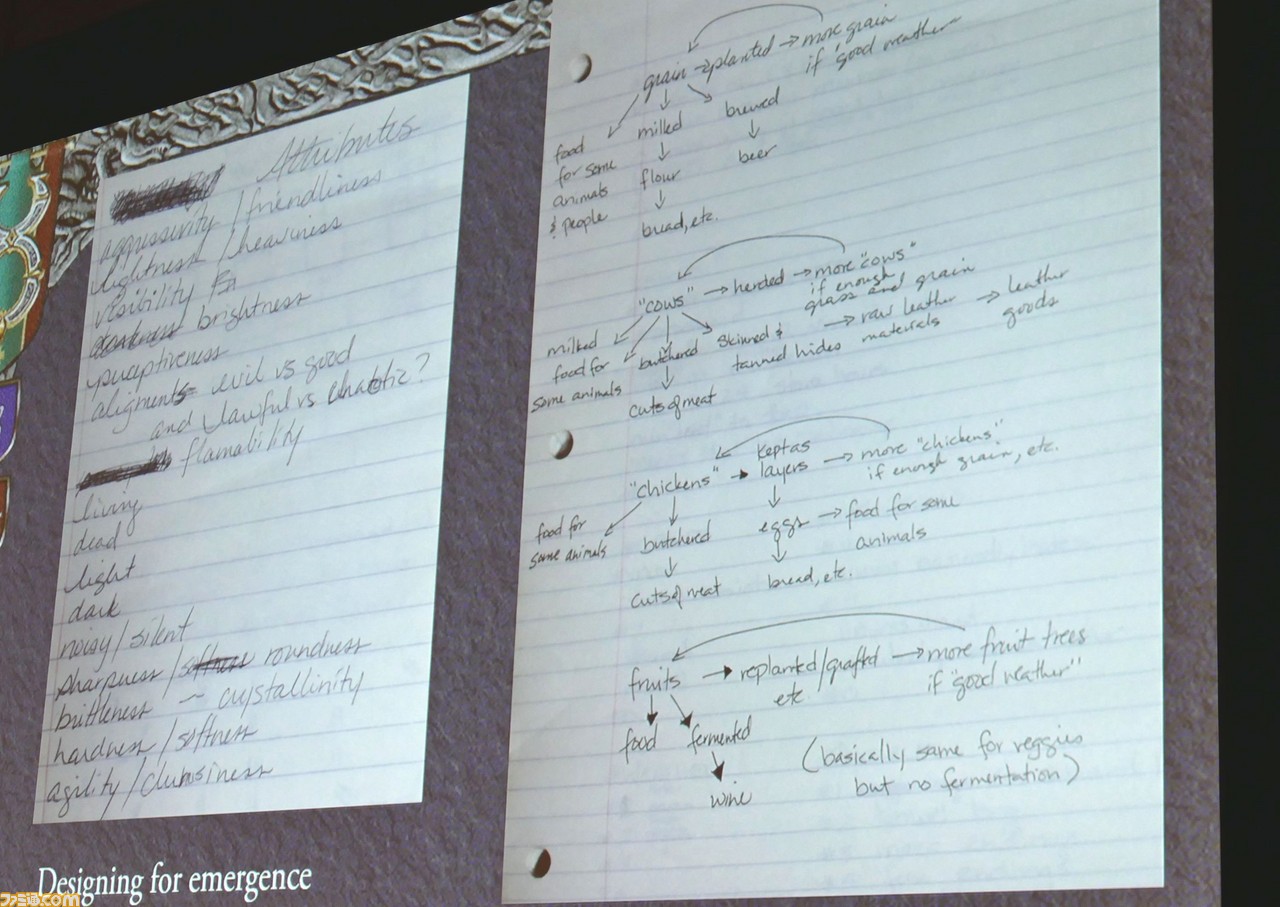 Attributes
aggressivity / friendliness
lightness / heaviness
visibility
darkness brightness
perceptiveness
aligments= evil vs good
and lawful vs chaotic?
flamability
living
dead
light
dark
noisy / silent
sharpness / softness roundness
brittleness ~ crystallinity
hardness / softness
agility / clumsiness
Designing for emergence
ファミ通.com
grain → planted → more grain
if "good weather"
food
for some
animals
& people
milled
flour
bread, etc.
brewed
beer
"cows" → herded → more "cows"
if enough
grass and grain
milked
food for
some animals
butchered
cuts of meat
skinned &
tanned hides
→ raw leather
materials
→ leather
goods
"chickens" → kept as
layers → more "chickens"
if enough grain, etc.
food for
some animals
butchered
cuts of meat
eggs → food for some
animals
bread, etc.
fruits → replanted/grafted → more fruit trees
etc
if "good weather"
food
fermented
wine
(basically same for veggies
but no fermentation)